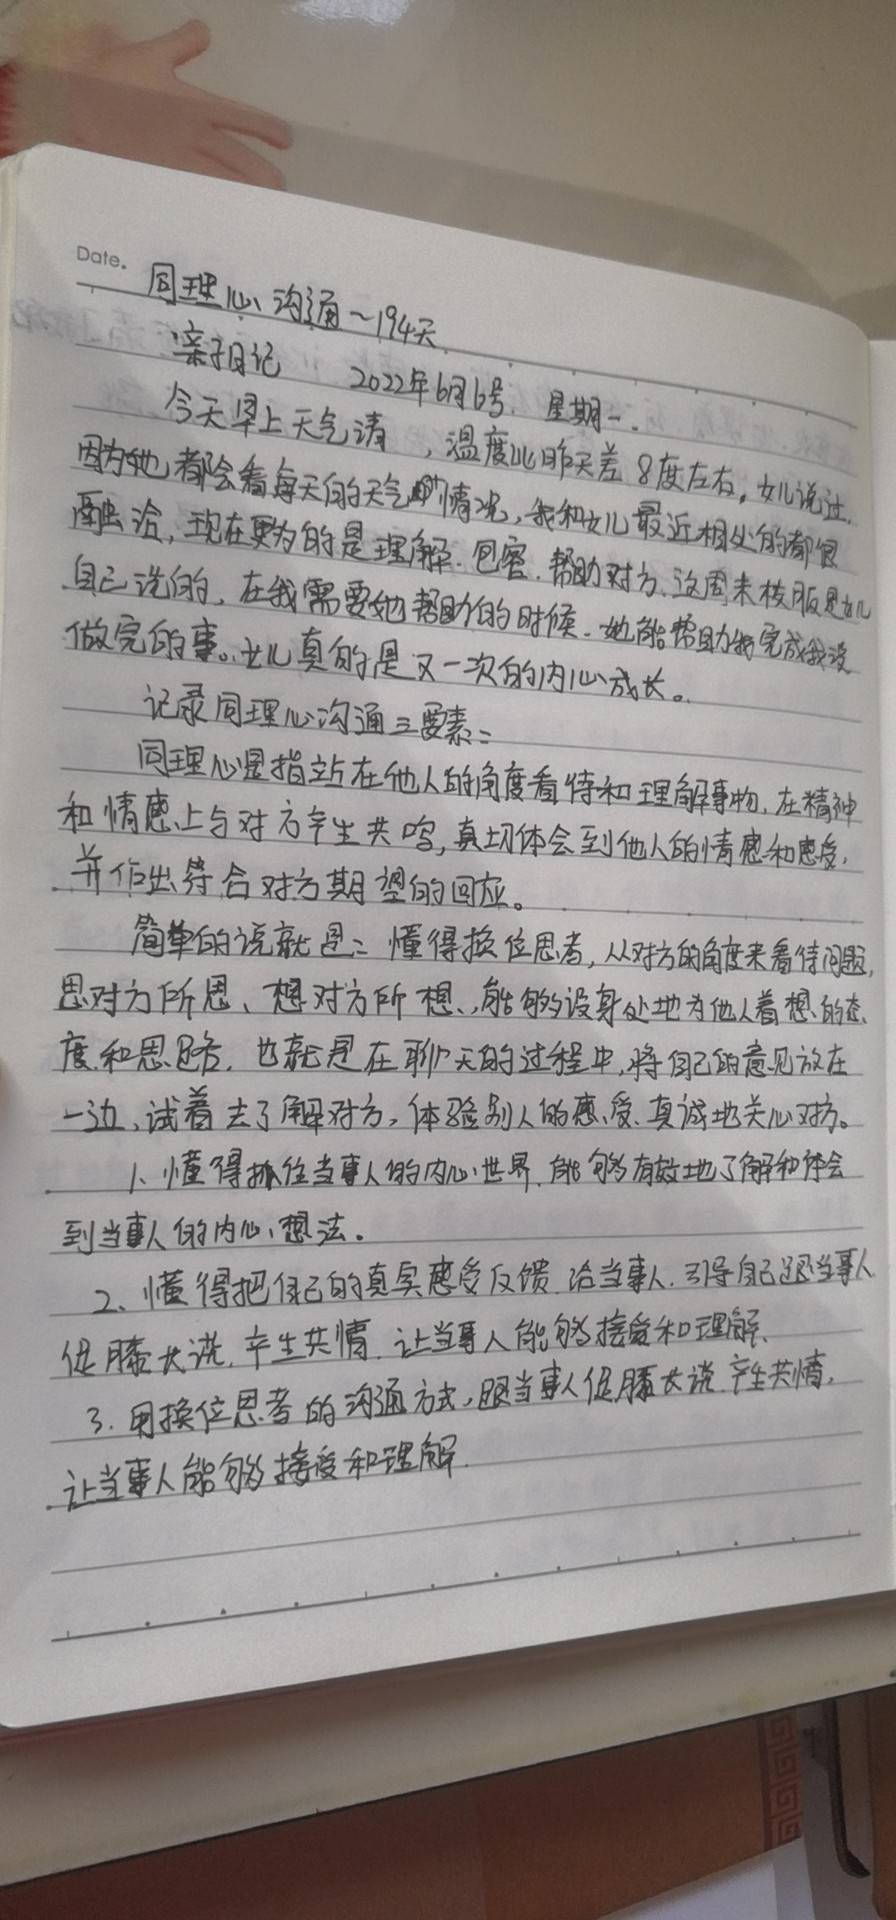 Date.
同理心沟通~194天
亲子日记 2022年6月6号. 星期一.
今天早上天气清,温度比昨天差8度左右。女儿说过.
因为她都会看每天的天气的情况,我和女儿最近相处的都很
融洽,现在更为的是理解.包容.帮助对方.这周末校服是女儿
自己洗的,在我需要她帮助的时候.她能帮助我完成我没
做完的事。女儿真的是又一次的内心成长。
记录同理心沟通三要素:
同理心是指站在他人的角度看待和理解事物,在精神
和情感上与对方产生共鸣,真切体会到他人的情感和感受,
并作出符合对方期望的回应。
简单的说就是:懂得换位思考,从对方的角度来看待问题,
思对方所思、想对方所想、能够设身处地为他人着想的态
度和思路.也就是在聊天的过程中,将自己的意见放在
一边,试着去了解对方,体验别人的感受.真诚地关心对方。
1、懂得抓住当事人的内心世界.能够有效地了解和体会
到当事人的内心想法。
2、懂得把自己的真实感受反馈给当事人.引导自己跟当事人
促膝长谈.产生共情.让当事人能够接受和理解.
3.用换位思考的沟通方式,跟当事人促膝长谈.产生共情,
让当事人能够接受和理解.